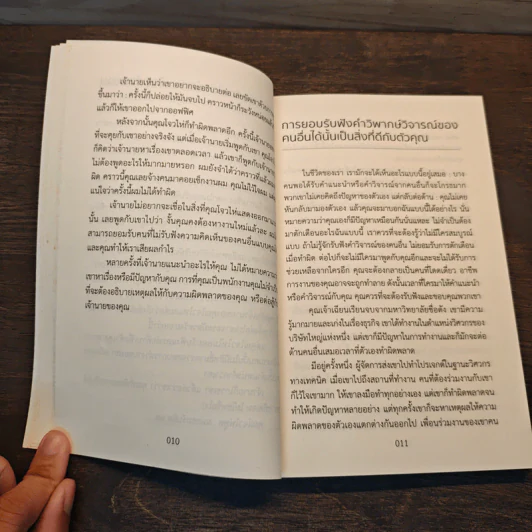 เจ้านายเห็นว่าเขาอยากจะอธิบายต่อ เลยขัดเขาด้วย
ขึ้นมาว่า ครั้งนี้ก็ปล่อยให้มันจบไป คราวหน้าก็ระวังหน่อย
แล้วก็ให้เขาออกไปจากออฟฟิศ
หลังจากนั้นคุณโจวไห่ก็ทำผิดพลาดอีก ครั้งนี้เจ้านาย
ที่จะคุยกับเขาอย่างจริงจัง แต่เมื่อเจ้านายเริ่มพูดกับเขา
ก็คิดว่าเจ้านายหาเรื่องเขาตลอดเวลา แล้วเขาก็พูดกับเจ้านาย
ไม่ต้องพูดอะไรให้มากมายหรอก ผมยังจำได้ว่าคราวที่แล้ว
ผิด คราวนี้คุณเลยจ้างคนมาคอยเช็กงานผม คุณไม่ไว้ใจ
แน่ใจว่าครั้งนี้ผมไม่ได้ทำผิด
เจ้านายไม่อยากจะเชื่อในสิ่งที่คุณโจวไห่แสดงออกมา
นั้น เลยพูดกับเขาไปว่า งั้นคุณคงต้องหางานใหม่แล้วละ
สามารถยอมรับคนที่ไม่รับฟังความคิดเห็นของคนอื่นแบบคุณ
และคุณทำให้เราเสียผลกำไร
หลายครั้งที่เจ้านายแนะนำอะไรให้คุณ ไม่ได้หมายความ
เขาหาเรื่องหรือมีปัญหากับคุณ การที่คุณเป็นพนักงานคุณไม่จำเป็น
ที่จะต้องอธิบายเหตุผลให้กับความผิดพลาดของคุณ หรือต่อสู้กับ
เจ้านายของคุณ
010
การยอมรับฟังคำวิพากษ์วิจารณ์ของ
คนอื่นได้นั้นเป็นสิ่งที่ดีกับตัวคุณ
ในชีวิตของเรา เรามักจะได้เห็นอะไรแบบนี้อยู่เสมอ บาง
คนพอได้รับคำแนะนำหรือคำวิจารณ์จากคนอื่นก็จะโกรธมาก
พวกเขาไม่เคยคิดถึงปัญหาของตัวเอง แต่กลับต่อต้าน คุณไม่เคย
หันกลับมามองตัวเอง แล้วคุณจะมาบอกฉันแบบนี้ได้อย่างไร นั่น
หมายความว่าคุณเองก็มีปัญหาเหมือนกันนั่นแหละ ไม่จำเป็นต้อง
มาตักเตือนอะไรฉันแบบนี้ เราควรที่จะต้องรู้ว่าไม่มีใครสมบูรณ์
แบบ ถ้าไม่รู้จักรับฟังคำวิจารณ์ของคนอื่น ไม่ยอมรับการตักเตือน
เมื่อทำผิด ต่อไปก็จะไม่มีใครมาพูดกับคุณอีกและจะไม่ได้รับการ
ช่วยเหลือจากใครอีก คุณจะต้องกลายเป็นคนที่โดดเดี่ยว อาชีพ
การงานของคุณอาจจะถูกทำลาย ดังนั้นเวลาที่มีใครมาให้คำแนะนำ
หรือคำวิจารณ์กับคุณ คุณควรที่จะต้องรับฟังและขอบคุณพวกเขา
คุณเจ้าเถียนเรียนจบจากมหาวิทยาลัยชื่อดัง เขามีความ
รู้มากมายและเก่งในเรื่องธุรกิจ เขาได้ทำงานในตำแหน่งวิศวกรของ
บริษัทใหญ่แห่งหนึ่ง แต่เขาก็มีปัญหาในการทำงานและก็มักจะต่อ
ต้านคนอื่นเสมอเวลาที่ตัวเองทำผิดพลาด
มีอยู่ครั้งหนึ่ง ผู้จัดการส่งเขาไปทำโปรเจกต์ในฐานะวิศวกร
ทางเทคนิค เมื่อเขาไปถึงสถานที่ทำงาน คนที่ต้องร่วมงานกับเขา
ก็ไว้ใจเขามาก ให้เขาลงมือทำทุกอย่างเอง แต่เขาก็ทำผิดพลาดจน
ทำให้เกิดปัญหาหลายอย่าง แต่ทุกครั้งเขาก็จะหาเหตุผลให้ความ
ผิดพลาดของตัวเองแตกต่างกันออกไป เพื่อนร่วมงานของเขาคน
011